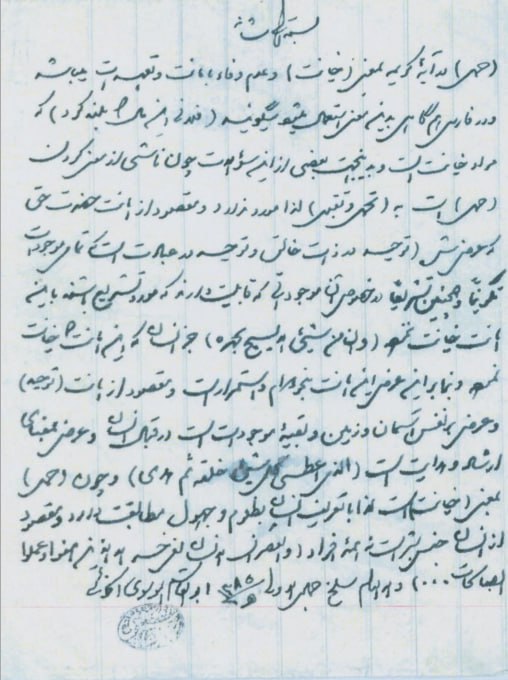 بسمه تعالی شأنه
(حمل) در آیهٔ کریمه بمعنی (خیانت) و عدم وفاء بامانت و تعهد است میباشد
و در فارسی هم گاهی بدین معنی استعمال میشود میگویند (فلانی این مال را بلند کرد) که
مراد خیانت است و بدینجهت بعضی از این سؤالات چون ناشی از معنی کردن
(حمل) است به (تحمل و تقبل) لذا مورد ندارد و مقصود از امانت حضرت حق
که عرض شد (توحید در ذات خالق و توحید در عبادت است که تمامی موجودات
تکویناً و همچنین تشریعاً در خصوص آن موجوداتی که قابلیت دارند که مورد تشریع باشند باین
امانت خیانت نمود (وان من شیئی الا یسبح بحمده) جز انسان که باین امانت خیانت
نمود و بنابراین عرض این امانت بنحو دوام و استمرار است و مقصود از امانت (توحید)
و عرض بر نفس آسمان و زمین و بقیهٔ موجودات است در قبال انسان و عرض بمعنای
ارشاد و هدایت است (الذی اعطی کل شیئ خلقه ثم هدی) و چون (حمل)
بمعنی (خیانت) است لذا با تعریف انسان بظلوم و جهول مطابقت دارد و مقصود
از انسان جنس بشر است نه همهٔ افراد (والعصر ان الانسان لفی خسر الا الذین آمنوا و عملوا
الصالحات ...) سلخ جمادی ۱۳۸۵ ابوالقاسم الموسوی الخوئی